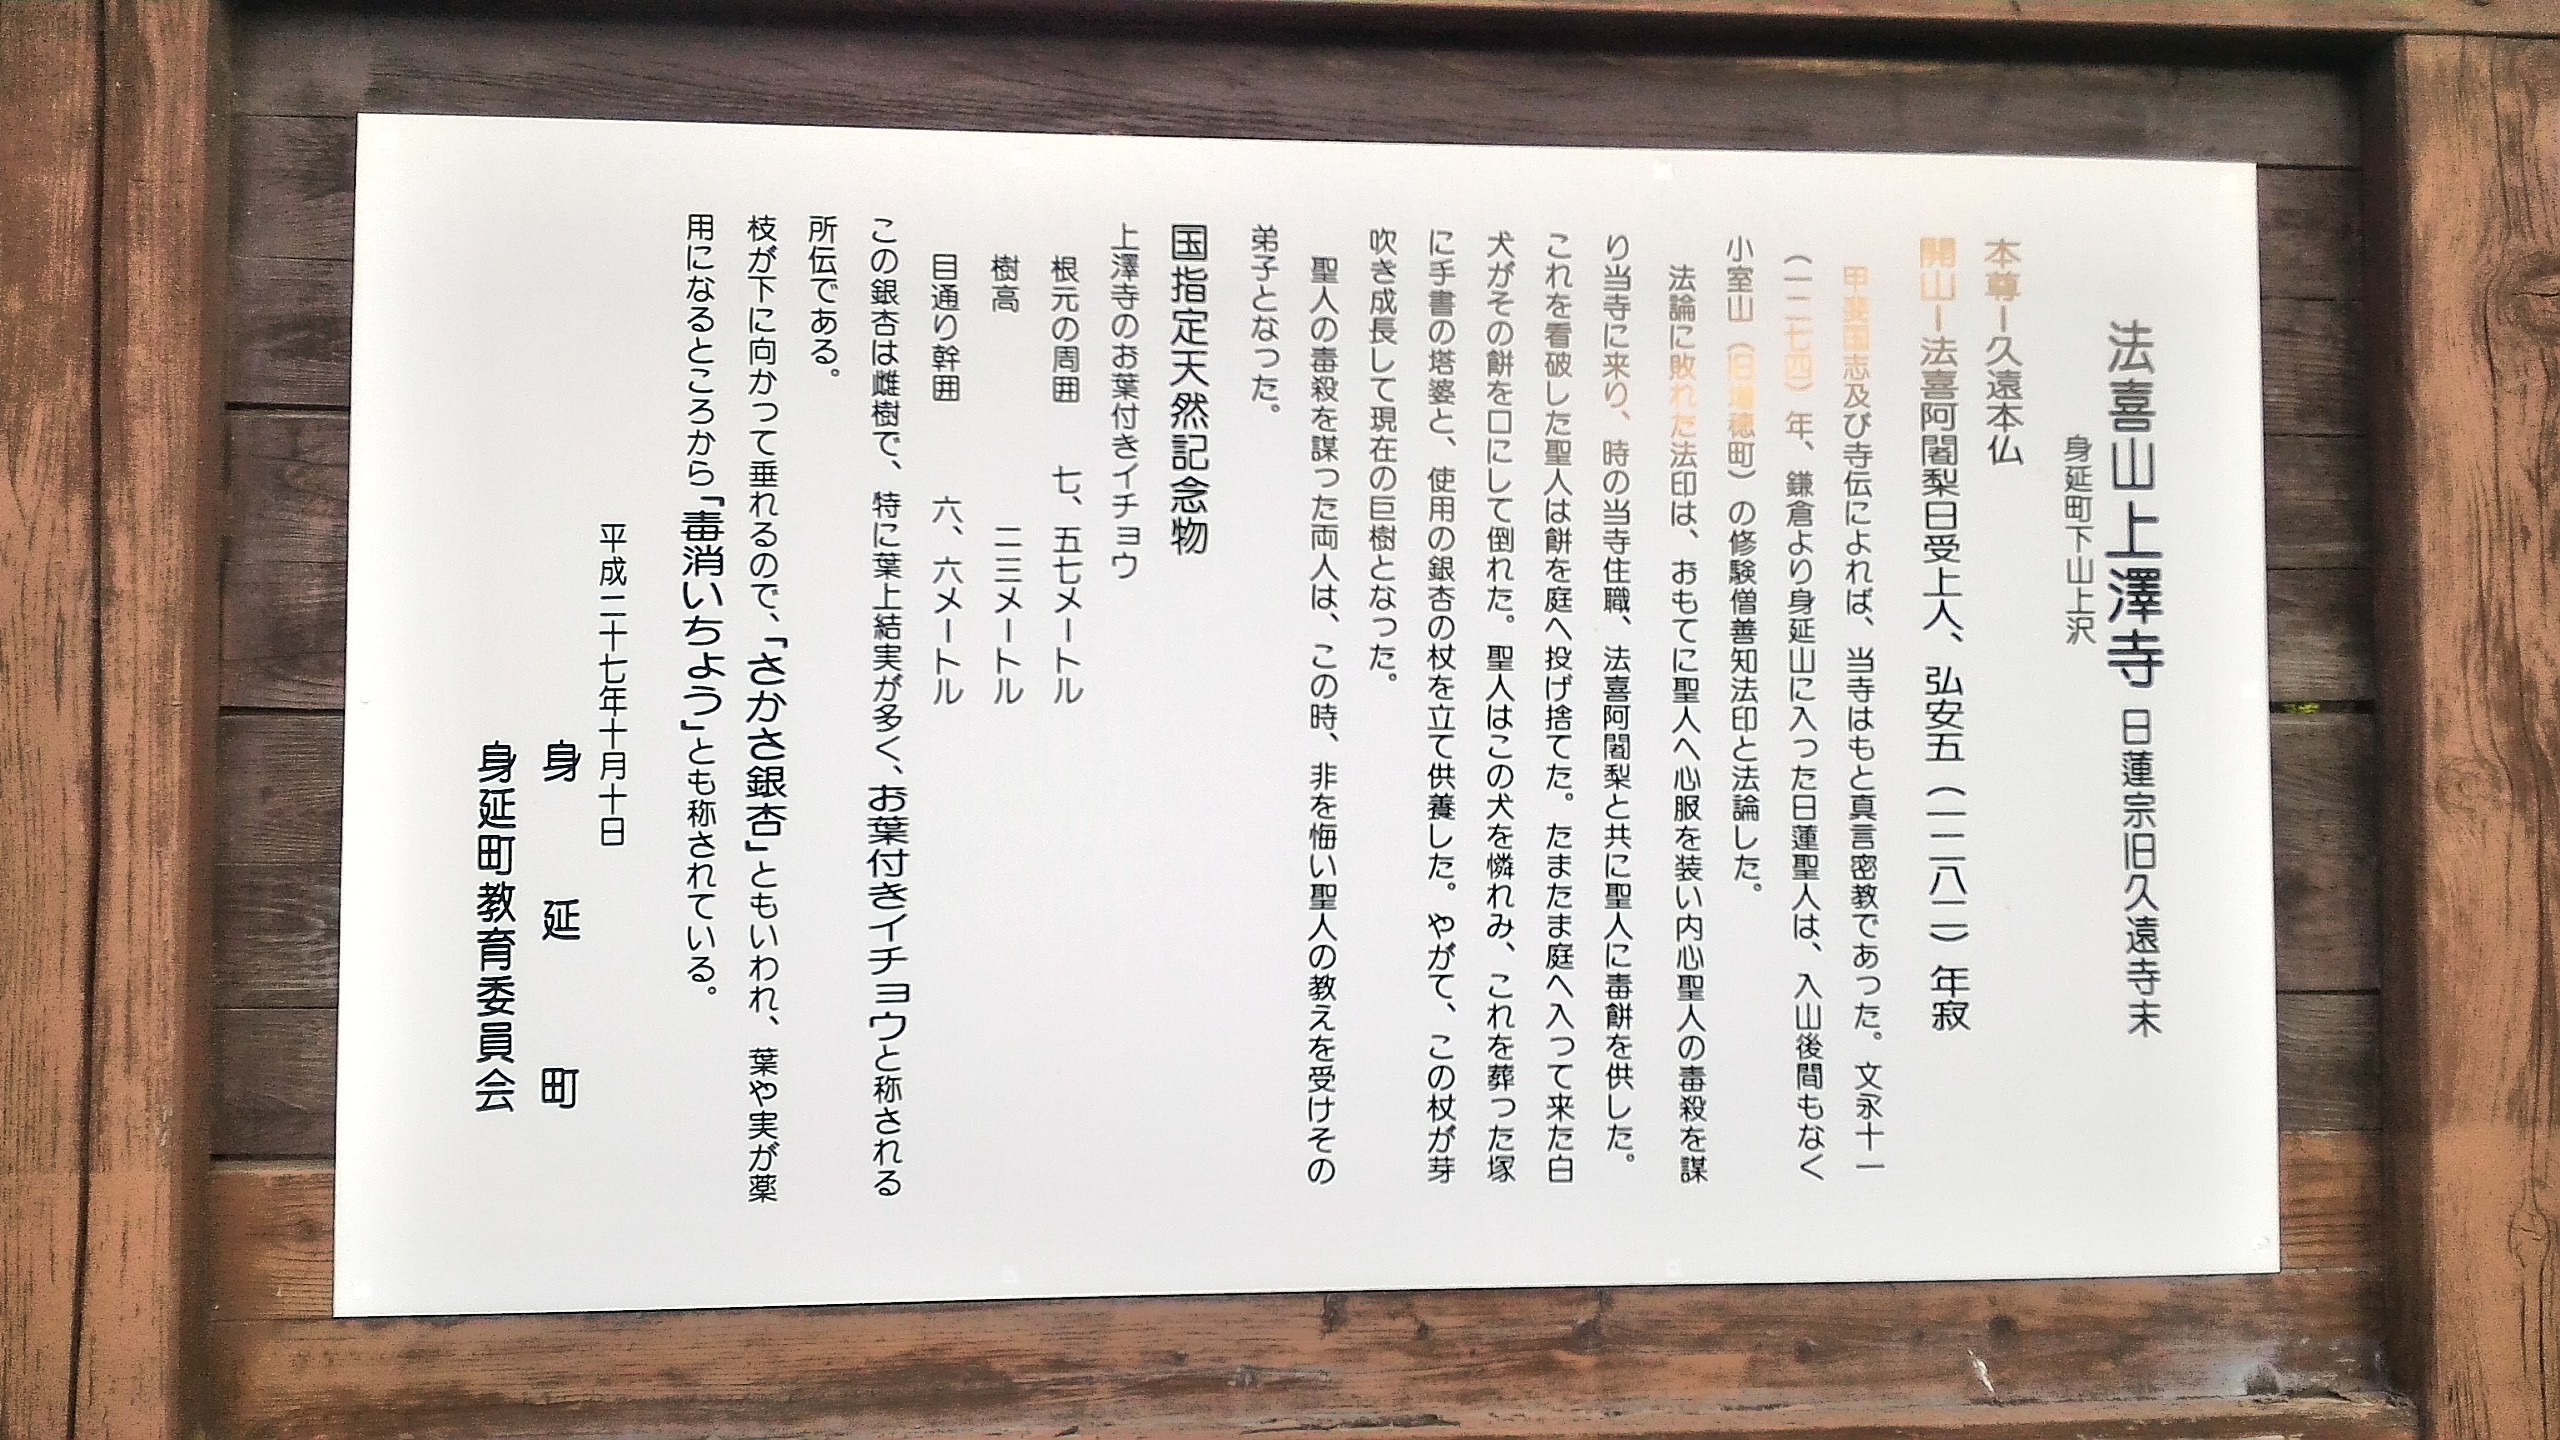 法喜山上澤寺 日蓮宗旧久遠寺末
身延町下山上沢
本尊ー久遠本仏
開山ー法喜阿闍梨日受上人、弘安五(一二八二)年寂
甲斐国志及び寺伝によれば、当寺はもと真言密教であった。文永十一
(一二七四)年、鎌倉より身延山に入った日蓮聖人は、入山後間もなく
小室山(旧増穂町)の修験僧善知法印と法論した。
法論に敗れた法印は、おもてに聖人へ心服を装い内心聖人の毒殺を謀
り当寺に来り、時の当寺住職、法喜阿闍梨と共に聖人に毒餅を供した。
これを看破した聖人は餅を庭へ投げ捨てた。たまたま庭へ入って来た白
犬がその餅を口にして倒れた。聖人はこの犬を憐れみ、これを葬った塚
に手書の塔婆と、使用の銀杏の杖を立て供養した。やがて、この杖が芽
吹き成長して現在の巨樹となった。
聖人の毒殺を謀った両人は、この時、非を悔い聖人の教えを受けその
弟子となった。
国指定天然記念物
上澤寺のお葉付きイチョウ
根元の周囲 七、五七メートル
樹高 二三メートル
目通り幹囲 六、六メートル
この銀杏は雌樹で、特に葉上結実が多く、お葉付きイチョウと称される
所伝である。
枝が下に向かって垂れるので、「さかさ銀杏」ともいわれ、葉や実が薬
用になるところから「毒消いちょう」とも称されている。
平成二十七年十月十日
身延町
身延町教育委員会